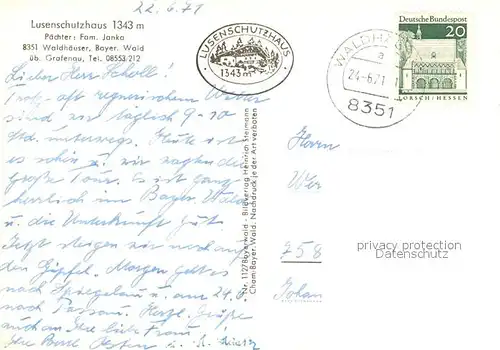 22.6.71
Lusenschutzhaus 1343 m
Pächter: Fam. Janka
8351 Waldhäuser, Bayer. Wald
üb. Grafenau, Tel. 08553/212
LUSENSCHUTZHAUS
1343 m
WALDHÄ
a
24.-6.71
8351
DEUTSCHE BUNDESPOST
20
LORSCH/HESSEN
Lieber Herr Scholl!
Trotz oft regnerischem Wetter
sind wir täglich 9-10
Std. unterwegs. Heute ist
es schön u. wir wagten die
große Tour. Es ist ganz
herrlich im Bayer. Wald
u. die Unterkunft gut.
Jetzt steigen wir noch auf
den Gipfel. Morgen geht es
nach Spiegelau u. am 24.6.
nach Passau. Herzl. Grüße
auch an Ihre liebe Frau
Ihre
Nr. 1127 Bayerwald - Bildverlag Heinrich Stejmann
Cham/Bayer. Wald. Nachdruck jeder Art verboten
Herrn
258
privacy protection
Datenschutz